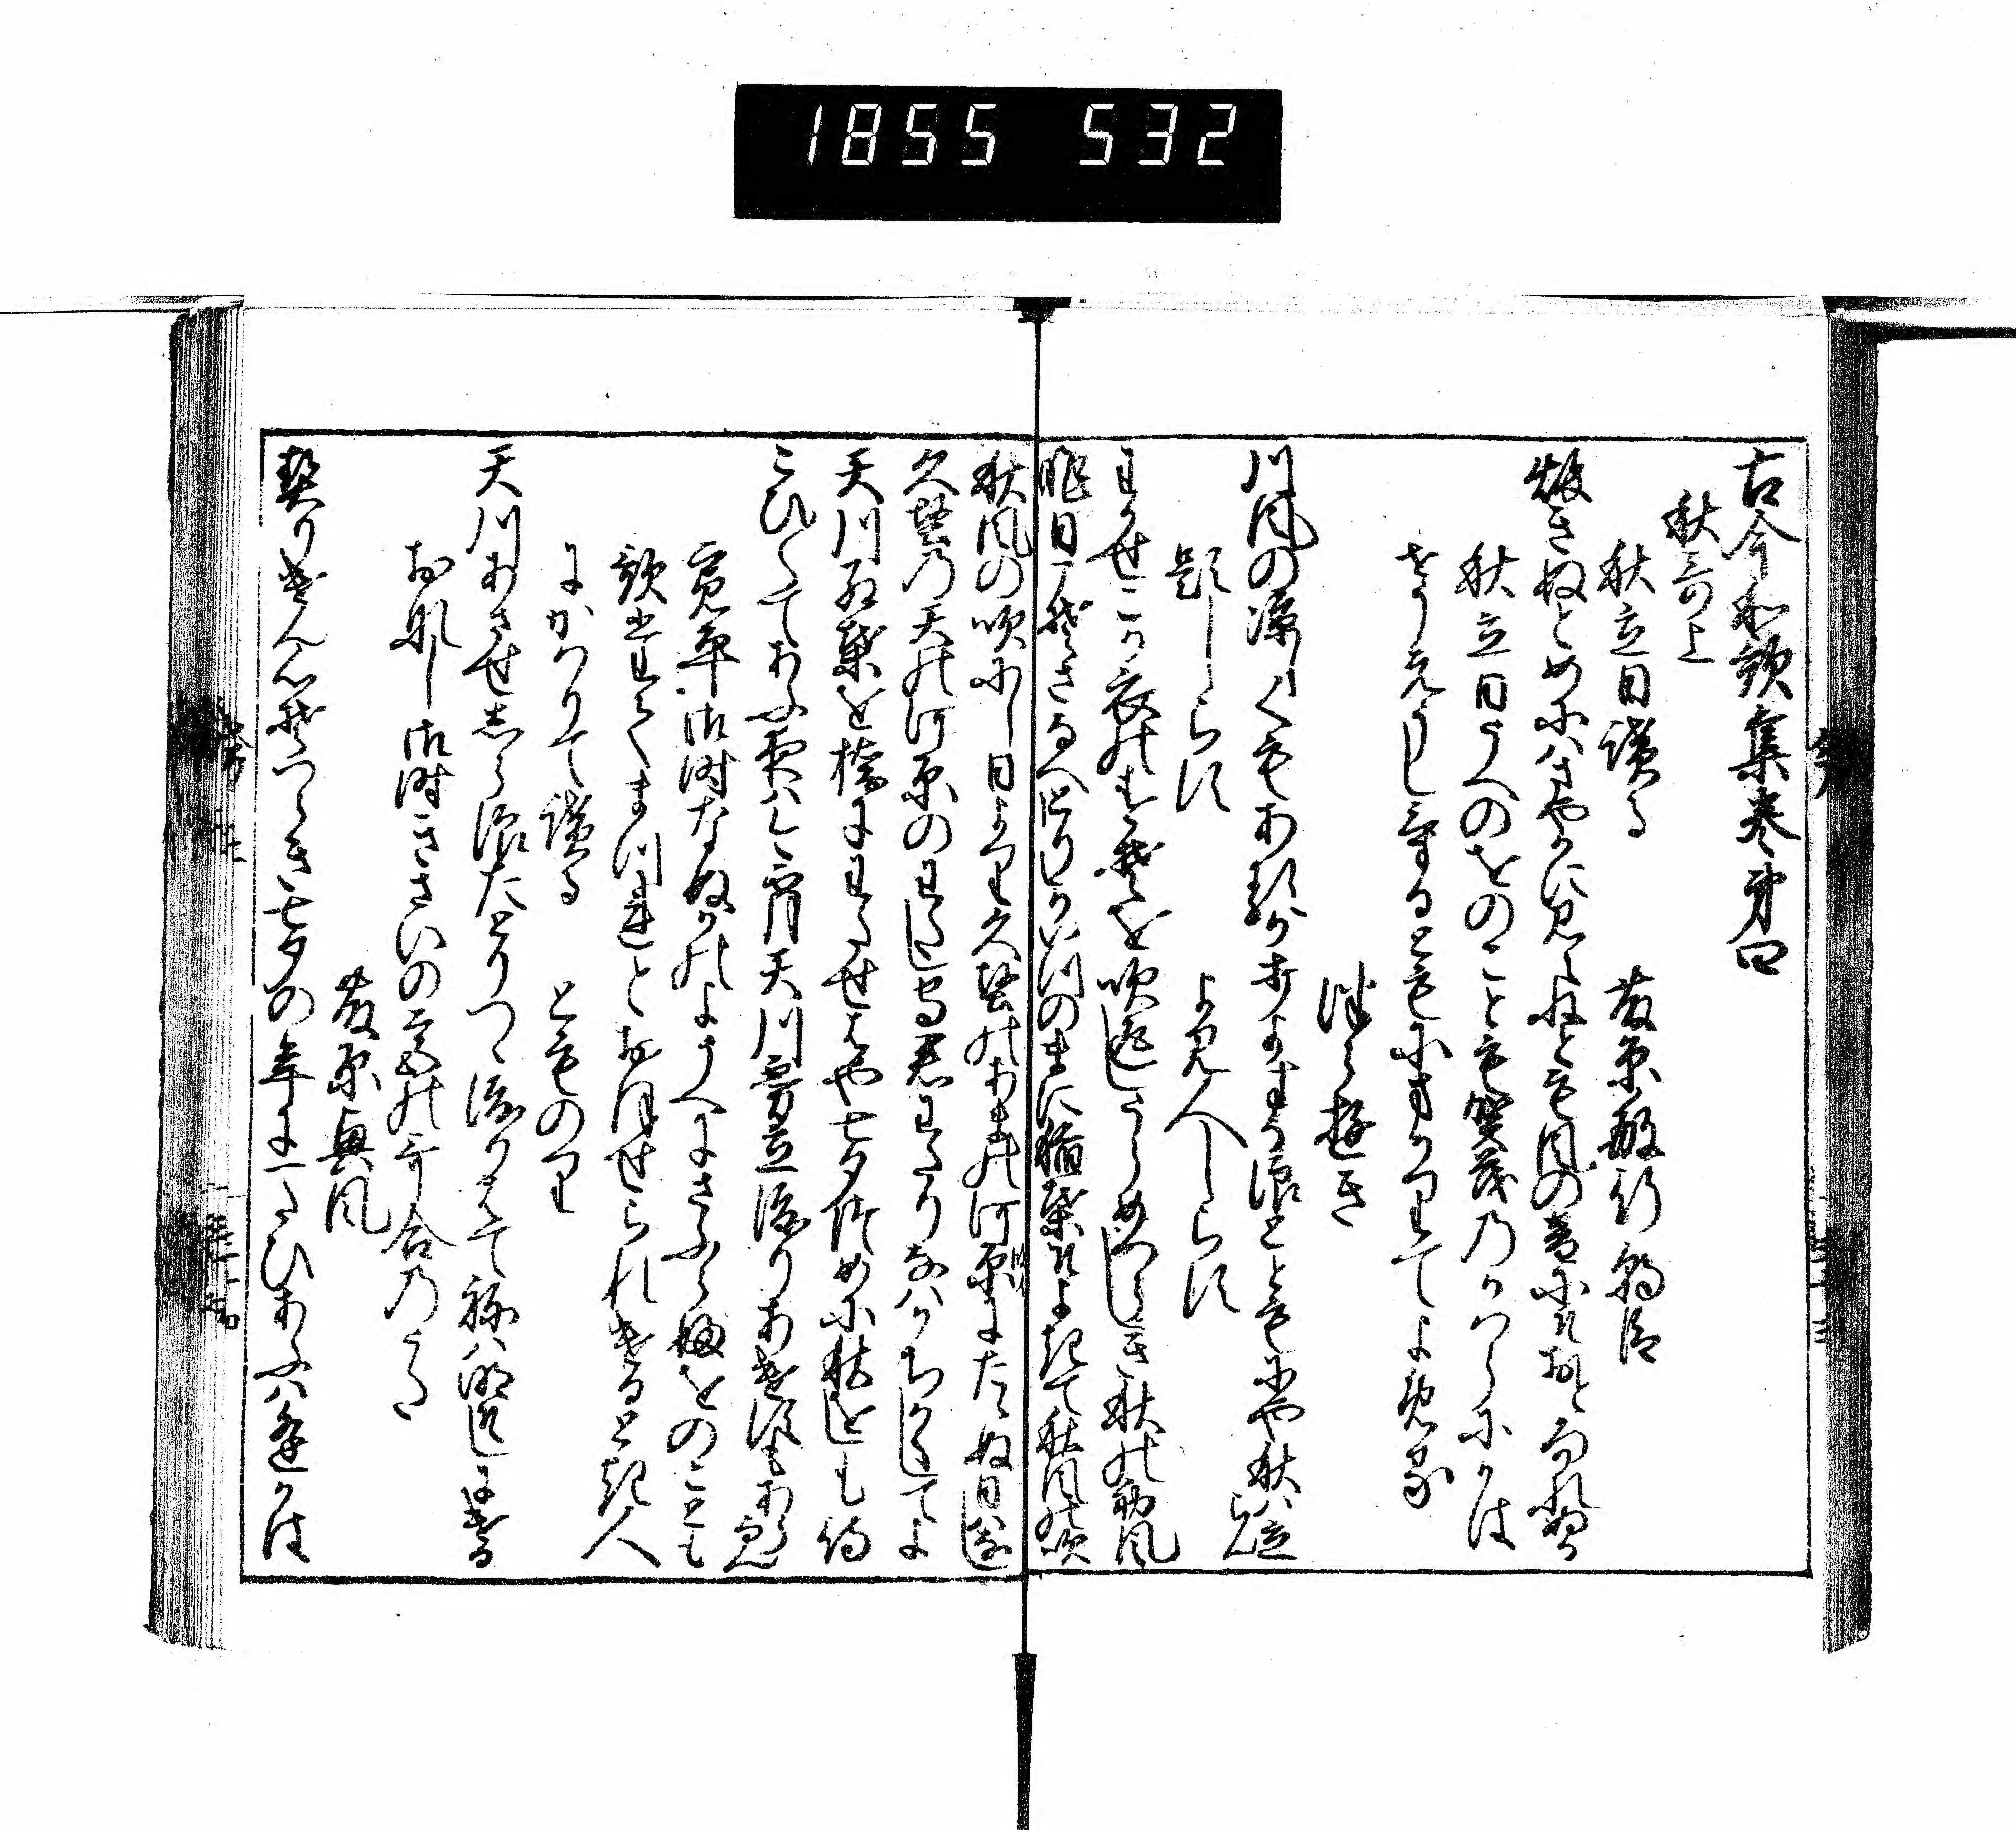 1855 532
古今和歌集巻第四
秋哥上
秋立日読る 藤原敏行朝臣
秋きぬとめにはさやかに見えねとも風の音にそおとろかれぬる
秋立日うへのをのことも賀茂のかはらにかは
せうえうしけるともにまかりてよめる
つらゆき
川風の涼しくもあるか打よする浪とともにや秋は立らん
題しらす よみ人しらす
わかせこか衣のすそを吹返しうらめつらしき秋の初風
昨日こそさなへとりしかいつのまに稲葉そよきて秋風の吹
秋風の吹にし日より久堅のあまの河原にたゝぬ日はなし
久堅の天の河原のわたし守君わたりなはかちかくしてよ
天川紅葉を橋にわたせはや七夕つめの秋をしも待
こひ〳〵てあふ夜はこよひ天川霧立渡りあけすもあらなん
寛平御時なぬかのよううへにさふらふをのことも
歌たてまつれとおほせられける時人
にかはりて読る とものり
天川あさせしら浪たとりつゝ渡りはてねは明そしにける
おなし御時きさいの宮の哥合のうた
藤原興風
契りけん心そつらき七夕の年に一たひあふはあふかは